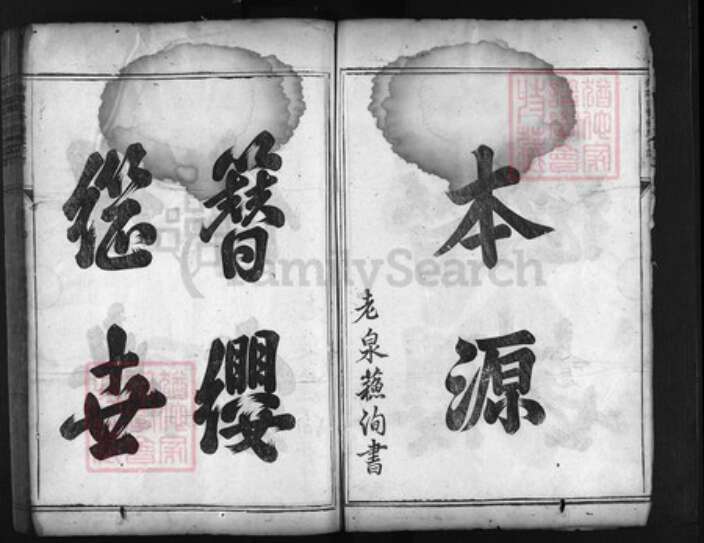 本源
老泉蘓洵書
簪纓
繼世
FamilySearch